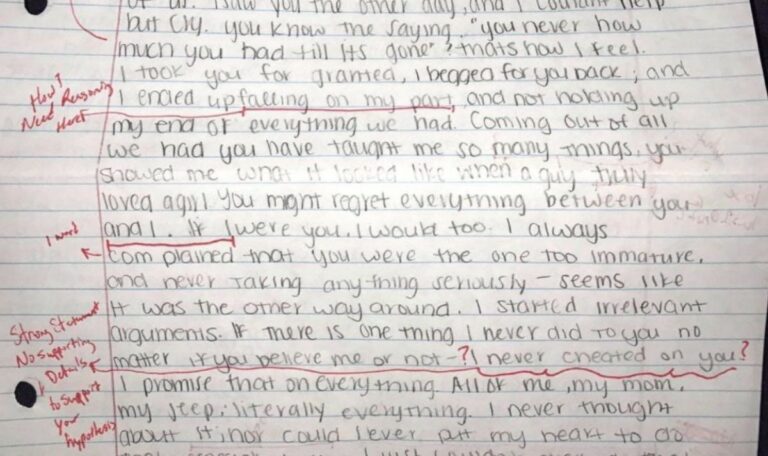 of us. I saw you the other day, and I couldnt help
but cry. you know the saying, "you never how
much you had till its gone"? thats how I feel.
I took you for granted, I begged for you back, and
How?
Need Reasoning
Here?
I ended up falling on my part, and not holding up
my end of everything we had. Coming out of all
we had you have taught me so many things, you
showed me what it looked like when a guy truly
loved a girl. You might regret everything between you
and I. If I were you, I would too. I always
1 word
complained that you were the one too immature,
and never taking any-thing seriously - seems like
it was the other way around. I started irrelevant
arguments. If there is one thing I never did to you no
matter if you believe me or not -? I never cheated on you?
Strong Statement
No supporting
Details
to support
your
hypothesis
I promise that on everything. All of me, my mom,
my step, literally everything. I never thought
about it, nor could I ever put my heart to do